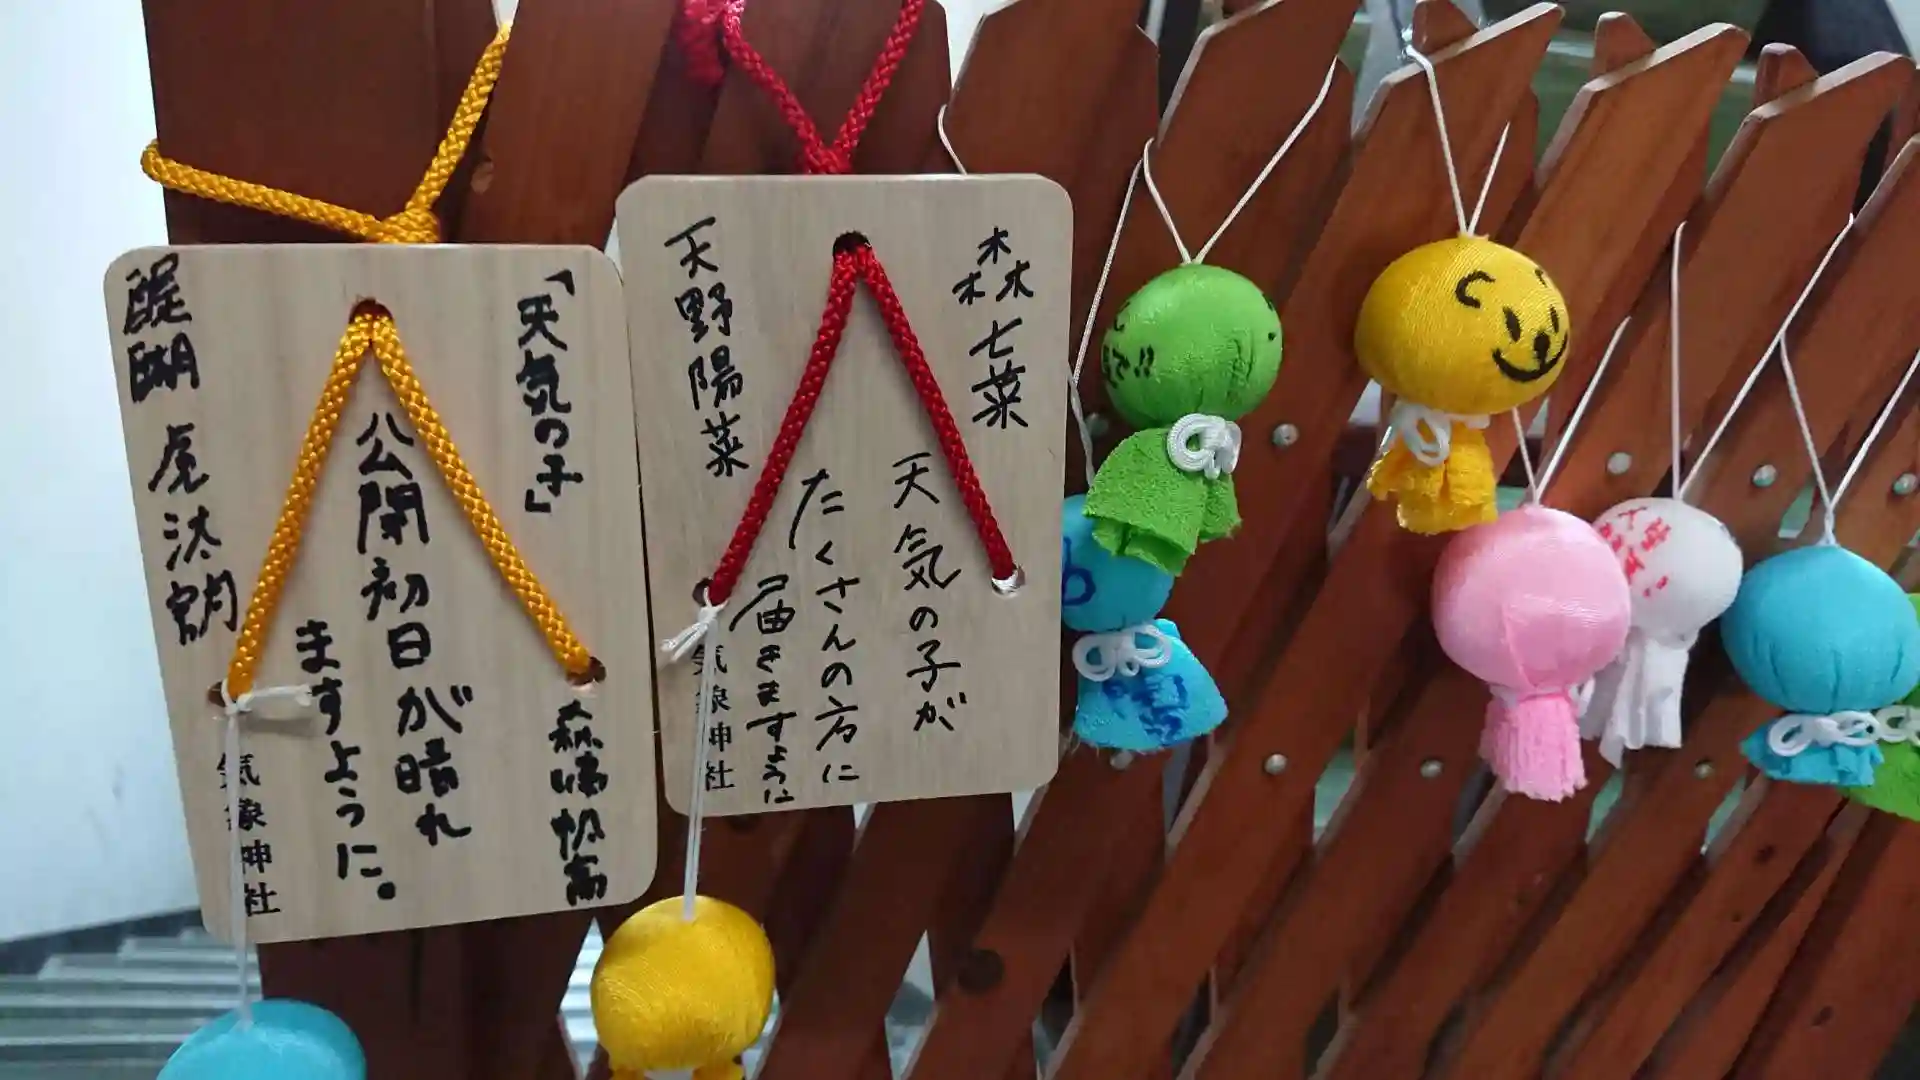 「天気の子」
公開初日が晴れ
ますように。
森嶋帆高
醍醐 虎汰朗
気象神社
森七菜
天気の子が
たくさんの方に
届きますように
天野陽菜
気象神社